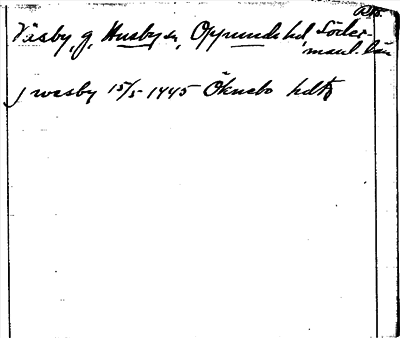 Väsby, g, Husby sn, Oppunda hd, Söder-
manl. län
j wæsby 15/5 1445 Öknebo hdtb